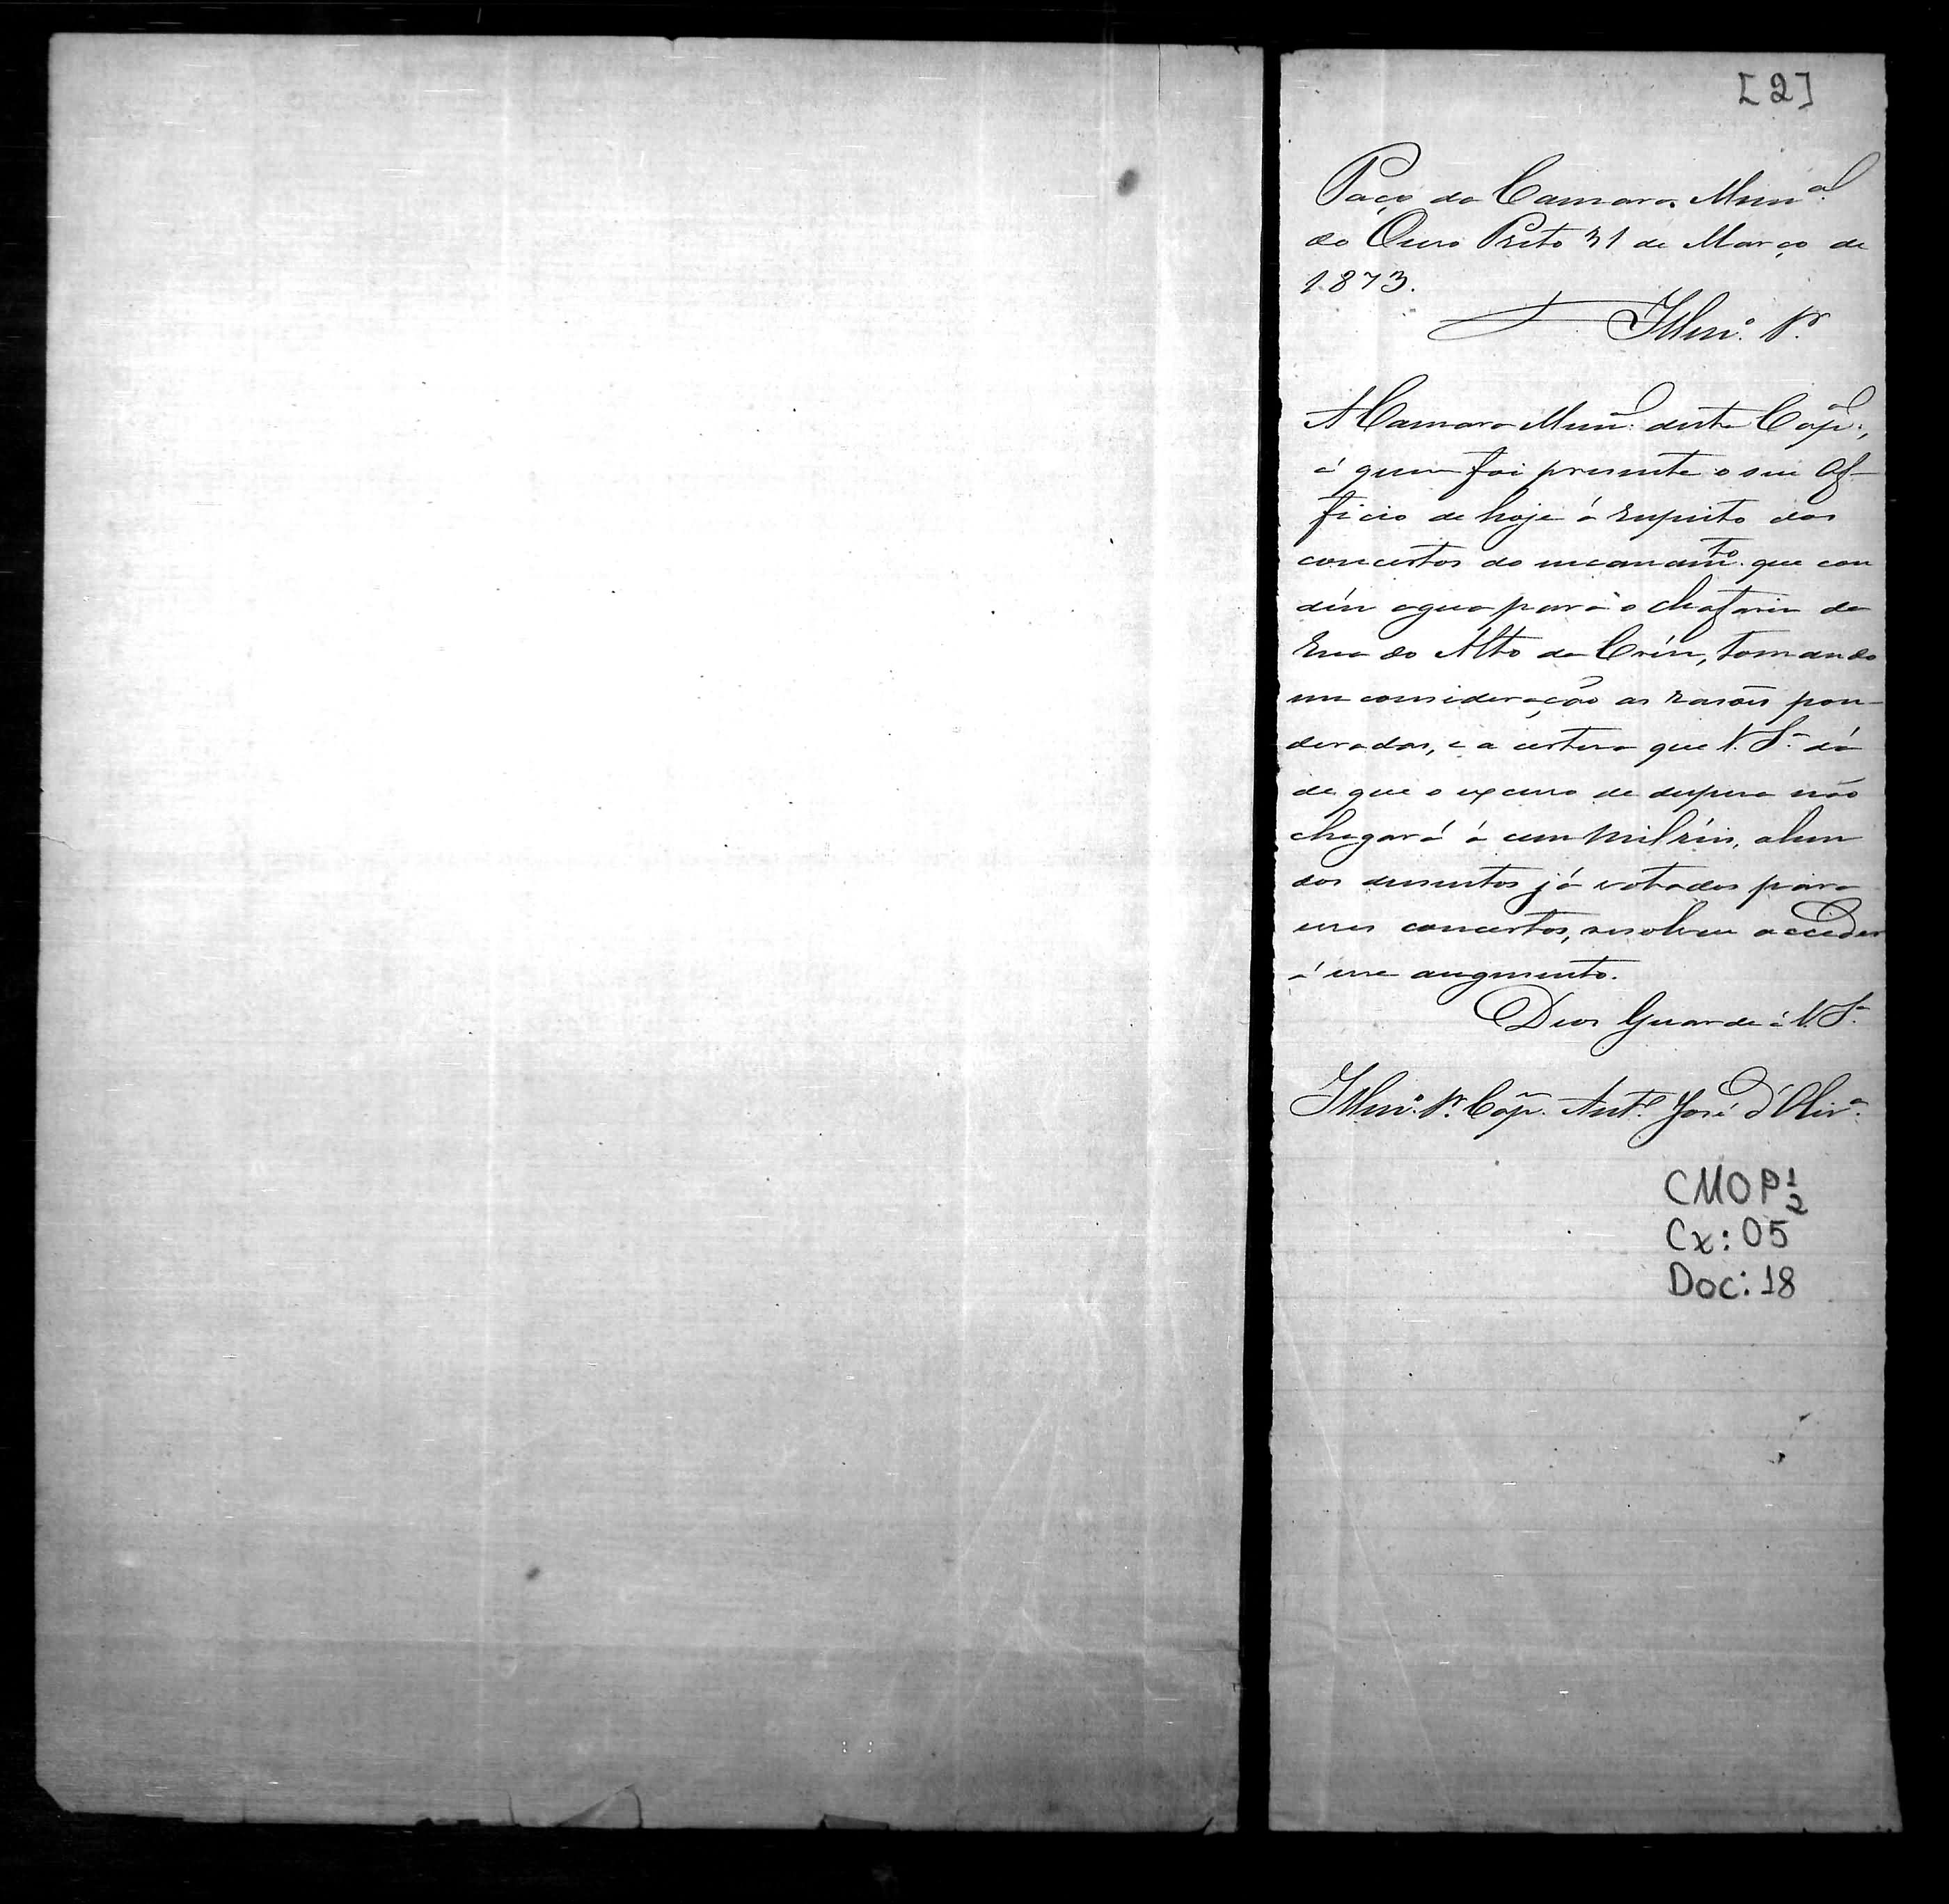 [2]
Paço da Camara Mun.al
do Ouro Preto 31 de Março de
1873.
Illm.º Sr.
A Camara Mun.al desta Cap.al,
á quem foi presente o seu Of-
ficio de hoje á respeito dos
concertos do encanam.to que con
duz agua para o chafariz da
rua do Alto da Cruz, tomando
em consideração as rasões pon-
deradas, e a certesa que V. S.ª dá
de que o excesso de despesa não
chegará á cem mil réis, alem
dos dusentos já votados para
esses concertos, resolveu acceder
á esse augmento.
Deos Guarde á V. S.ª
Illm.º Sr. Cap.m Ant.º José d'Oliv.ª
CMOP 1/2
Cx: 05
Doc: 18